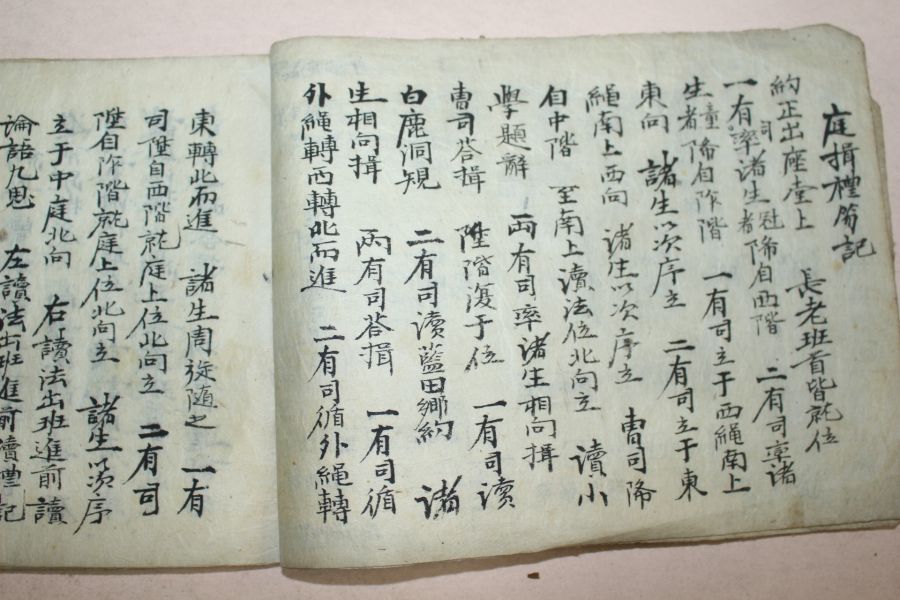 庭揖禮笏記
約正出座堂上　長老班首皆就位
一有司率諸生冠者降自西階　二有司率諸
生童者降自阼階　一有司立于西繩南上
東向　諸生以次序立　二有司立于東
繩南上西向　諸生以次序立　曺司降
自中階　至南上讀法位北向立　讀小
學題辭　兩有司率諸生相向揖
曺司答揖　陞階復于位　一有司讀
白鹿洞規　二有司讀藍田鄉約　諸
生相向揖　兩有司答揖　一有司循
外繩轉西轉北而進　二有司循外繩轉
東轉北而進　諸生周旋隨之　一有
司陞自西階就庭上位北向立　二有司
陞自阼階就庭上位北向立　諸生以次序
立于中庭北向　右讀法出班進前讀
論語九思　左讀法出班進前讀禮記